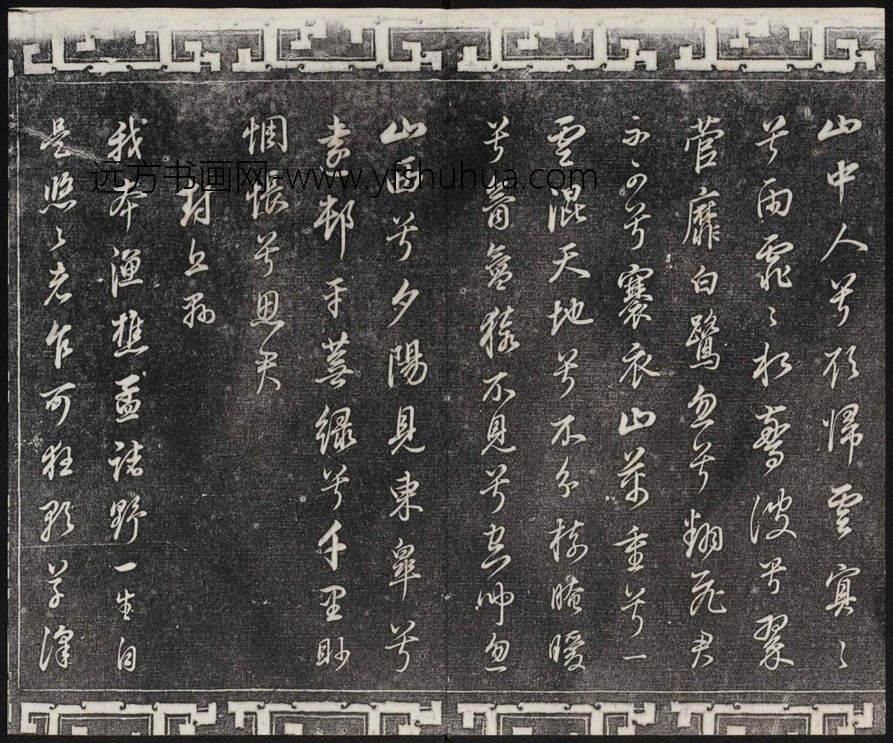 山中人兮欲歸雲冥〻
兮雨霏〻水驚波兮翠
菅靡白鷺忽兮翻飛君
不可兮褰衣山萬重兮一
雲混天地兮不分樹晻曖
兮氛氳猿不見兮空聞忽
山西兮夕陽見東皋兮
遠村平蕪綠兮千里眇
惆悵兮思君
封丘縣
我本漁樵孟諸野一生自
是悠〻者乍可狂歌草澤
远方书画网-www.yfshuhua.com